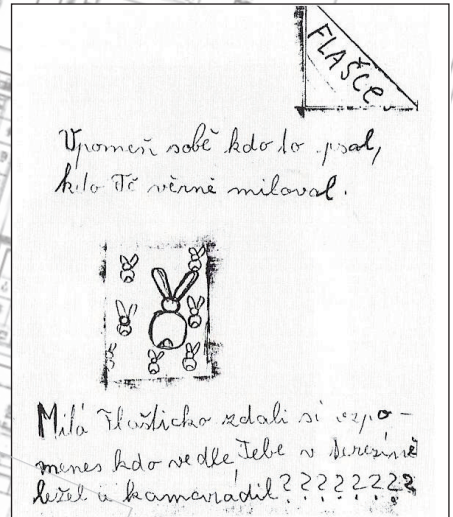 FLAŠCE
Vpomeň sobě kdo to psal,
kdo Tě věrně miloval.
Milá Flaštičko zdali si vzpo-
meneš kdo vedle Tebe v Terezíně
ležel a kamarádil????????